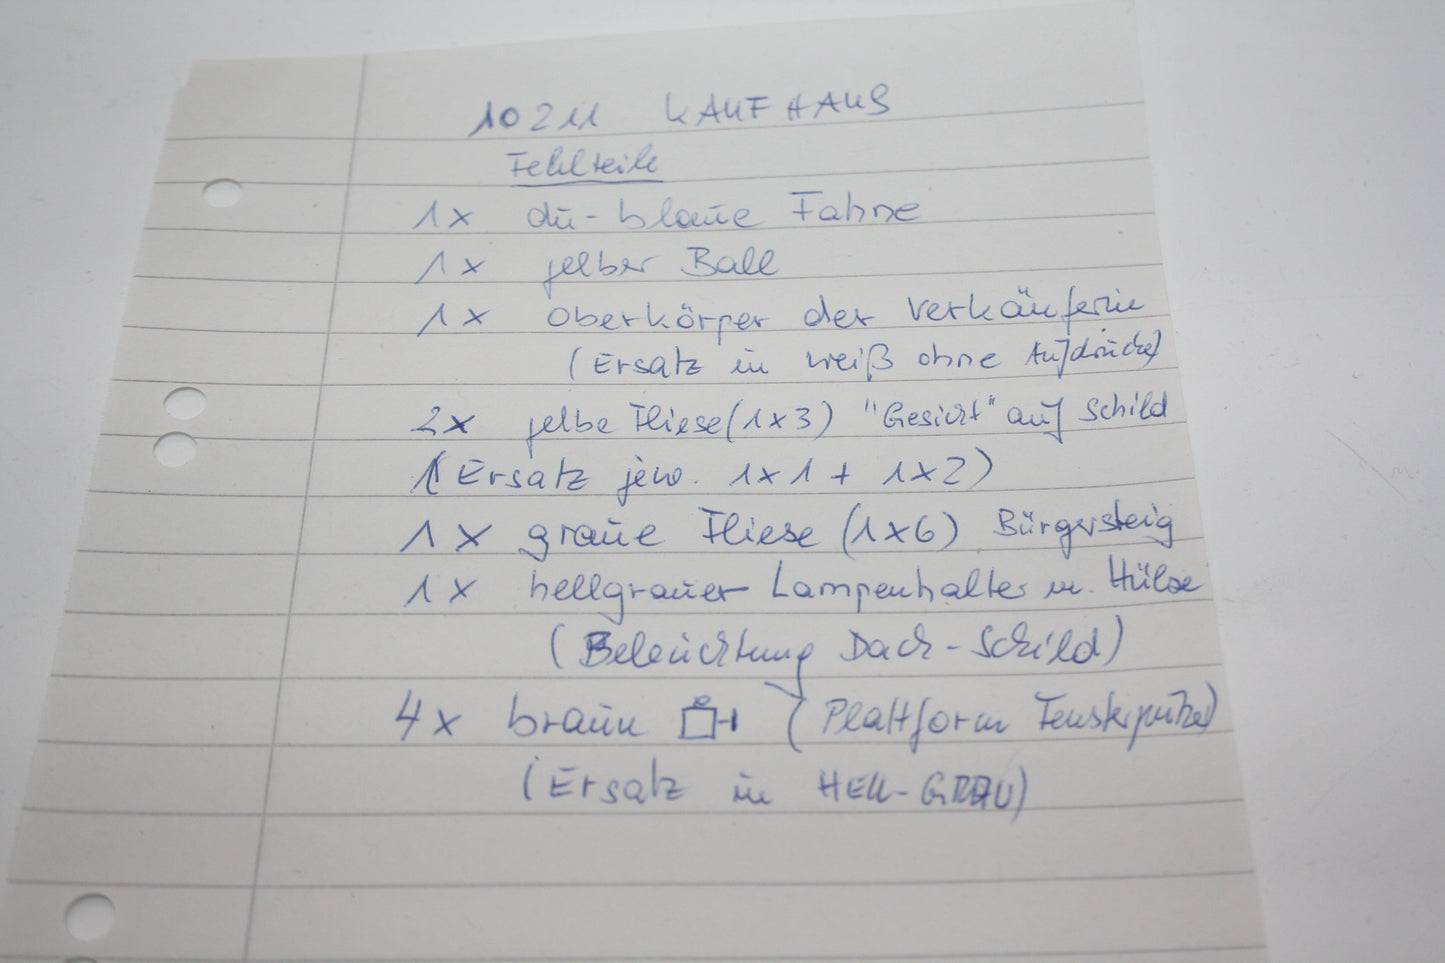 10211 KAUFHAUS
Fehlteile
1x du-blaue Fahne
1x gelber Ball
1x Oberkörper der Verkäuferin
(Ersatz in weiß ohne Aufdruck)
2x gelbe Fliese (1x3) "Gesicht" auf Schild
(Ersatz jew. 1x1 + 1x2)
1x graue Fliese (1x6) Bürgersteig
1x hellgrauer Lampenhalter m. Hülse
(Beleuchtung Dach-Schild)
4x braun (Plattform Fensterputzer)
(Ersatz in HELL-GRAU)